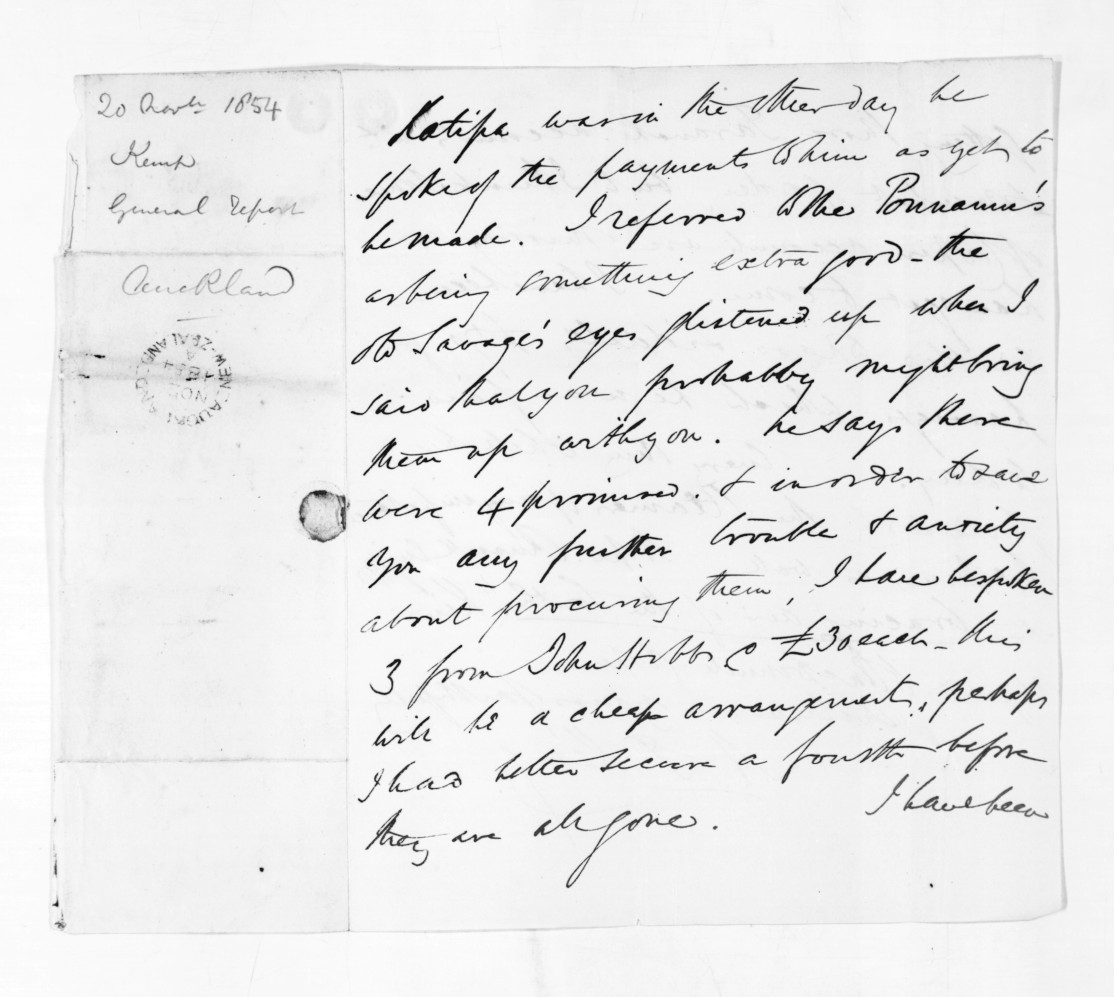 20 Novbr 1854
Kemp
General report
Auckland
AUCKLAND
NEW-ZEALAND
NO
1854
Katipa was in the other day he
spoke of the payments to him as yet to
be made. I referred to the Pounamu's
as being something extra good - the
old Savage's eyes glistened up when I
said that you probably might bring
them up with you. he says there
were 4 promised. & in order to save
you any further trouble & anxiety
about procuring them, I have bespoken
3 from John Hobbs @ £30 each - this
will be a cheap arrangement, perhaps
I had better secure a fourth before
they are all gone. I have been